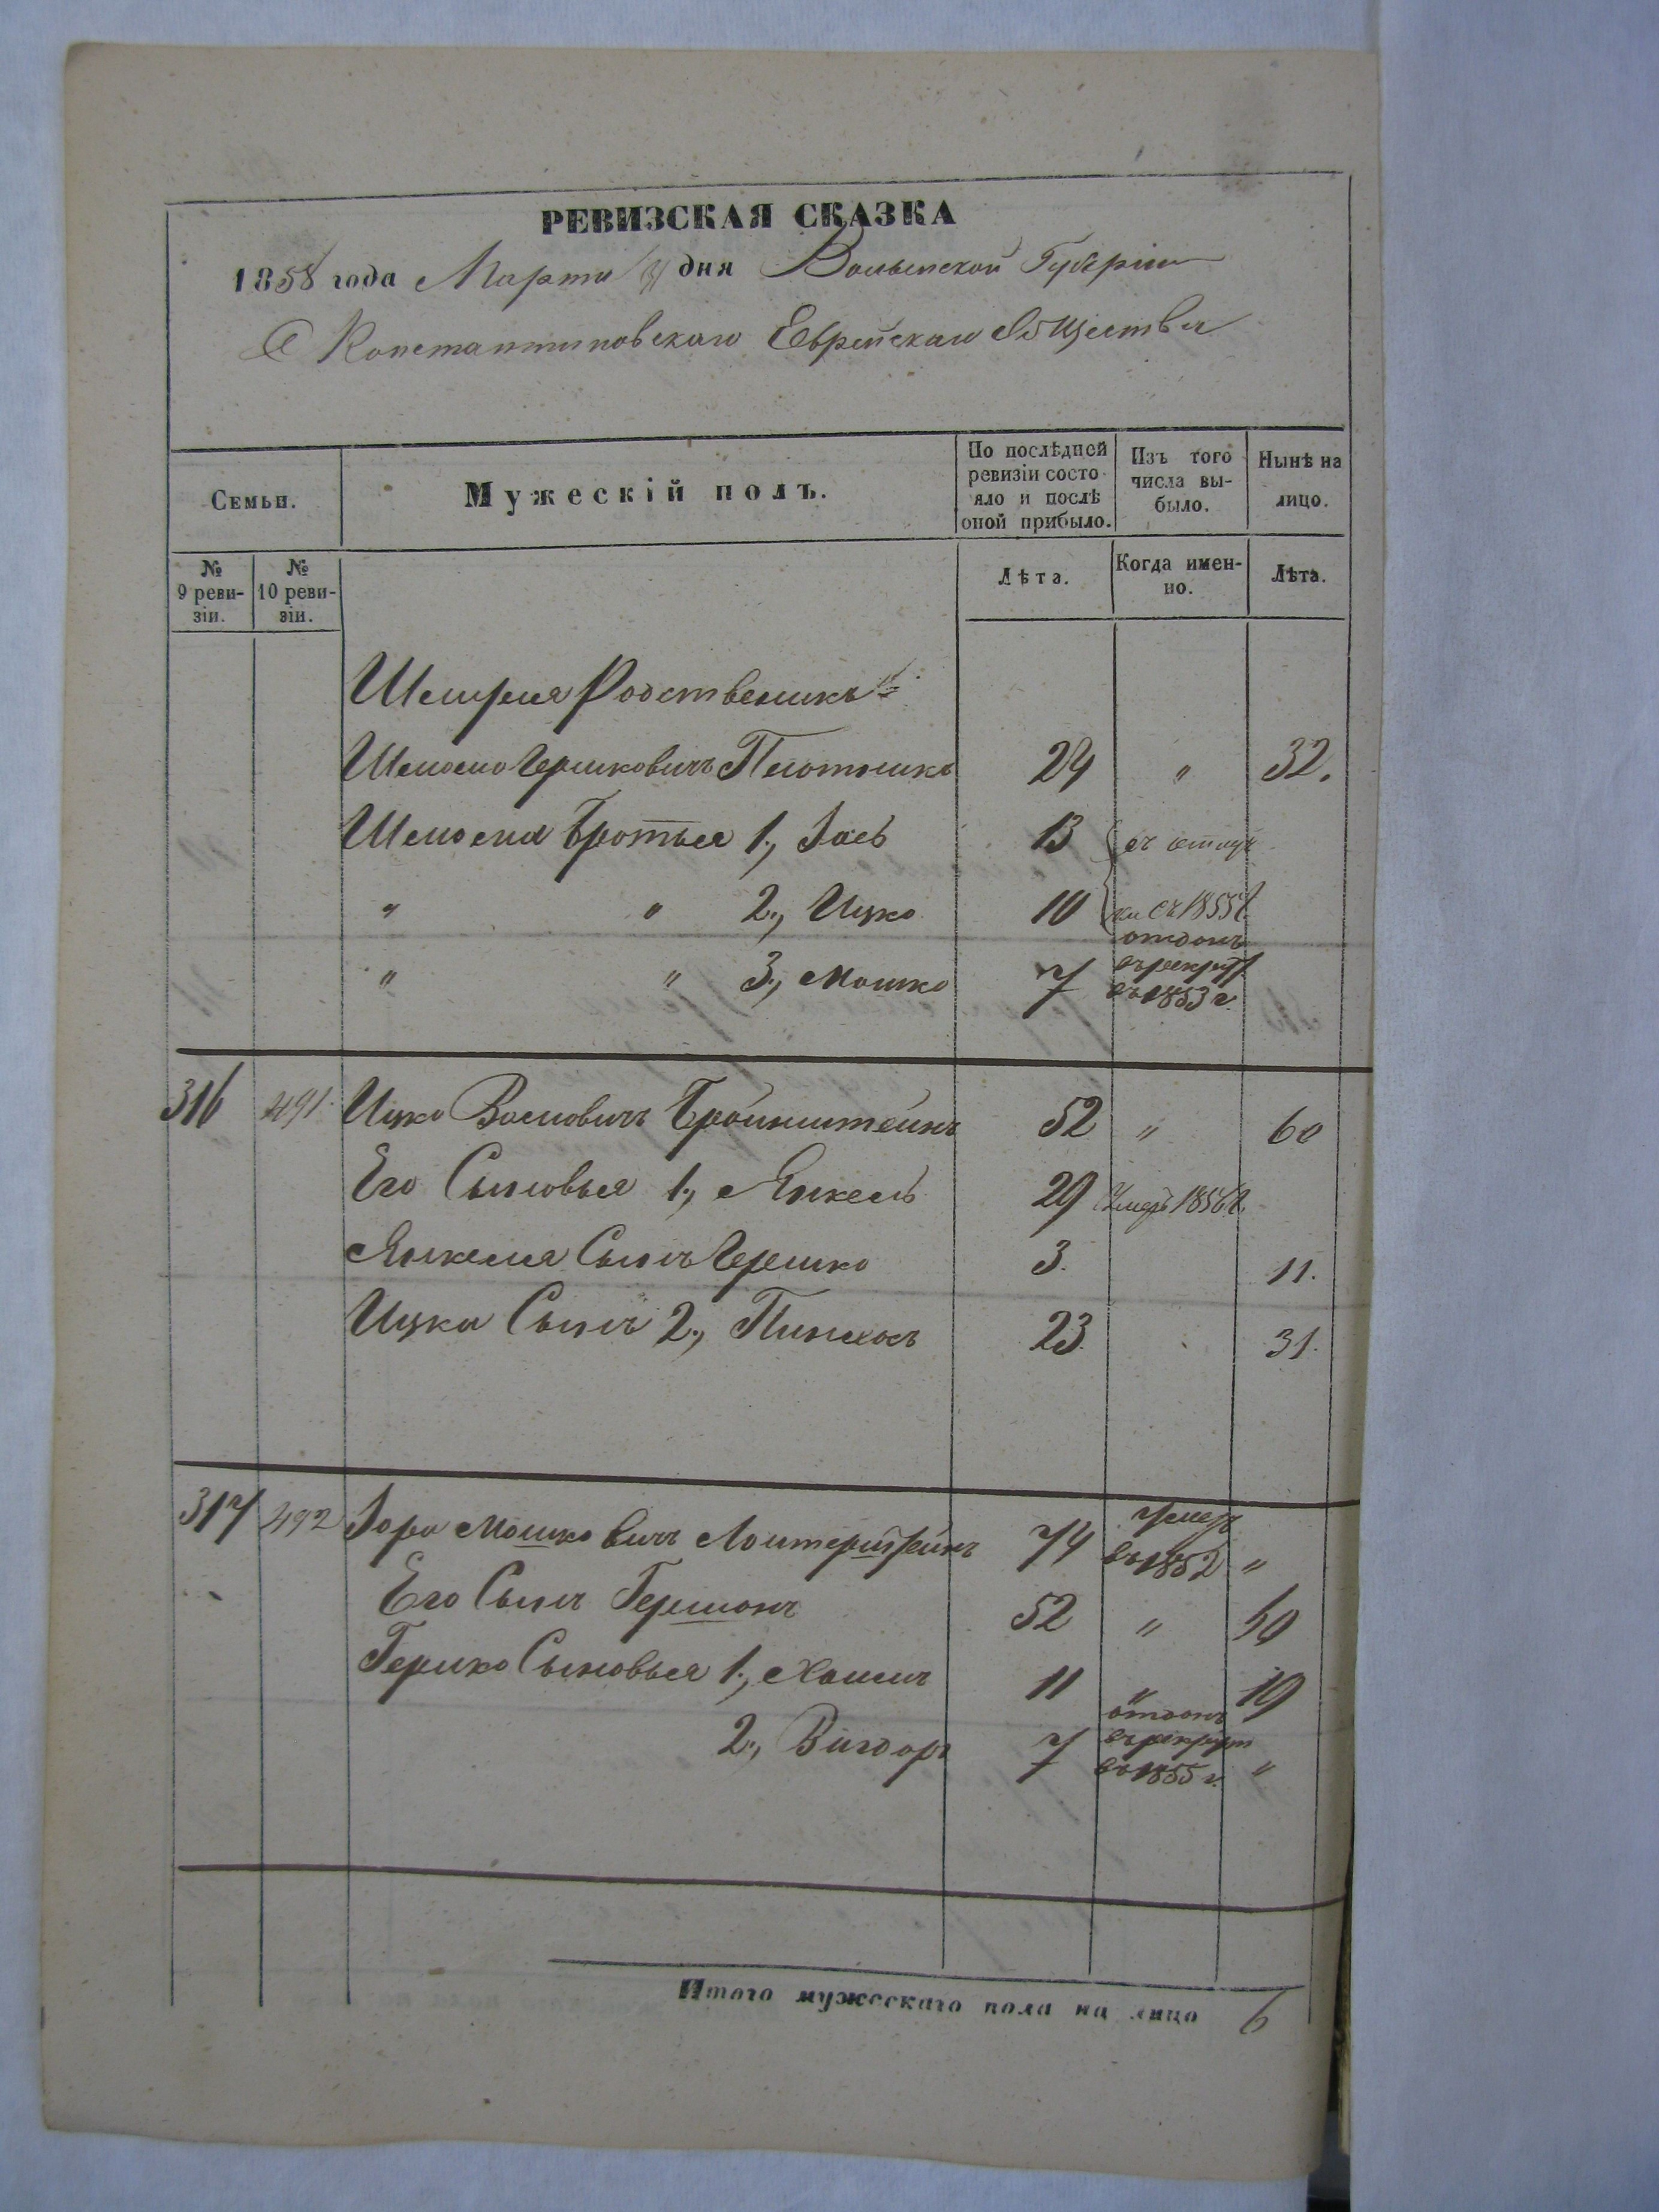 РЕВИЗСКАЯ СКАЗКА
1858 года Марта дня Волынской Губерніи
С Константиновскаго Еврейскаго Общества
Семьи.
Мужескій полъ.
По послѣдней ревизіи состояло и послѣ оной прибыло.
Изъ того числа выбыло.
Нынѣ на лицо.
№ 9 ревизіи.
№ 10 ревизіи.
Лѣта.
Когда именно.
Лѣта.
Родственикъ
Шлiомо Гершковичъ Плотникъ 24 " 32.
Шлiома Братья 1., Заев 13
" " 2., Ицко 10 съ 1855 г.
" " 3., Мошко 7 отданъ въ рекруты въ 1853 г.
316 491 Ицко Волиовичъ Бронштейнъ 52 " 60
Его Сыновья 1., Янкель 29 Умеръ 1856 г.
Янкеля Сынъ Гершко 3. 11.
Ицка Сынъ 2., Пинхосъ 23. 31.
317 492 Мошковичъ 74 умеръ въ 1852 "
Его Сынъ Гершонъ 52 "
Гершко Сыновья 1., Хаимъ 11 " 19
2., Вигдоръ 7 отданъ въ рекрут въ 1855 г. "
Итого мужескаго пола на лицо 6